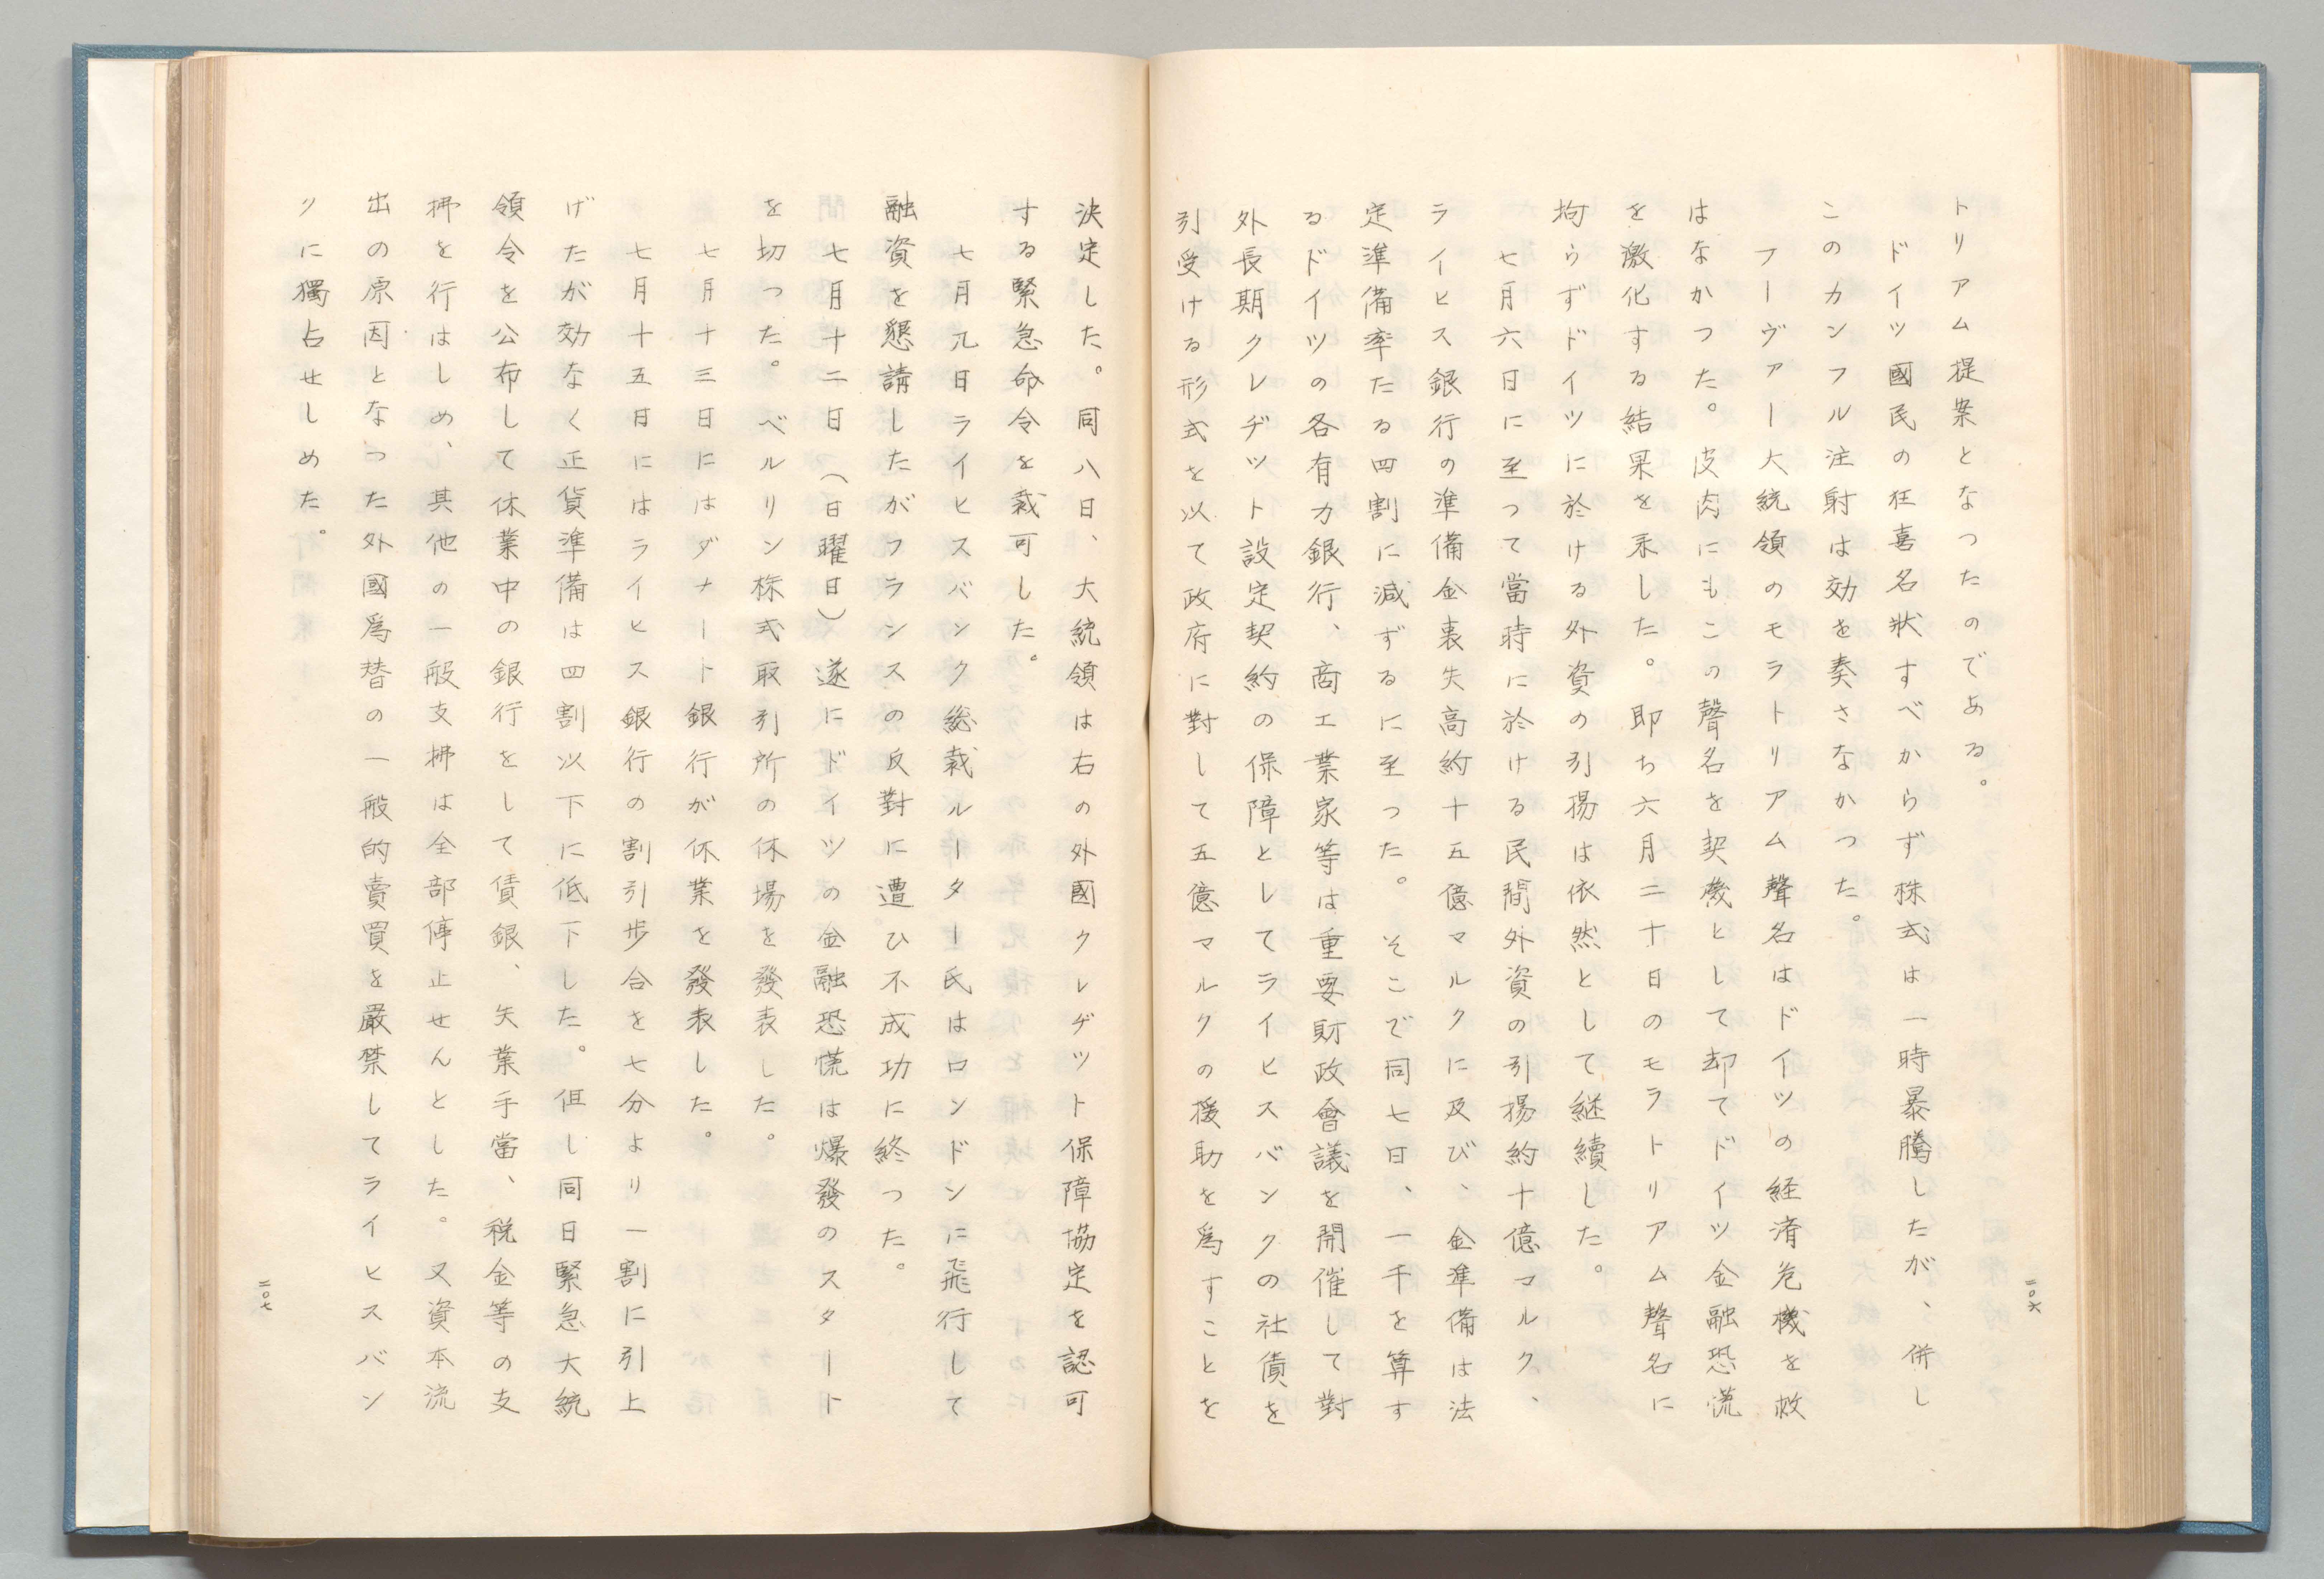 トリアム提案となつたのである。
ドイツ國民の狂喜名狀すべからず株式は一時暴騰したが、併し
このカンフル注射は効を奏さなかつた。
フーヴァー大統領のモラトリアム聲名はドイツの経済危機を救
はなかつた。皮肉にもこの聲名を契機として却てドイツ金融恐慌
を激化する結果を来した。即ち六月二十日のモラトリアム聲名に
拘らずドイツに於ける外資の引揚は依然として継續した。
七月六日に至つて當時に於ける民間外資の引揚約十億マルク、
ライヒス銀行の準備金裏失高約十五億マルクに及び、金準備は法
定準備率たる四割に減ずるに至つた。そこで同七日、一千を算す
るドイツの各有力銀行、商工業家等は重要財政會議を開催して對
外長期クレヂツト設定契約の保障としてライヒスバンクの社債を
引受ける形式を以て政府に對して五億マルクの援助を爲すことを
二〇六
決定した。同八日、大統領は右の外國クレヂツト保障協定を認可
する緊急命令を裁可した。
七月九日ライヒスバンク総裁ルーター氏はロンドンに飛行して
融資を懇請したがフランスの反對に遭ひ不成功に終つた。
七月十二日（日曜日）遂にドイツの金融恐慌は爆發のスタート
を切つた。ベルリン株式取引所の休場を發表した。
七月十三日にはダナート銀行が休業を發表した。
七月十五日にはライヒス銀行の割引歩合を七分より一割に引上
げたが効なく正貨準備は四割以下に低下した。但し同日緊急大統
領令を公布して休業中の銀行をして賃銀、失業手當、税金等の支
拂を行はしめ、其他の一般支拂は全部停止せんとした。又資本流
出の原因となつた外國爲替の一般的賣買を嚴禁してライヒスバン
クに獨占せしめた。
二〇七